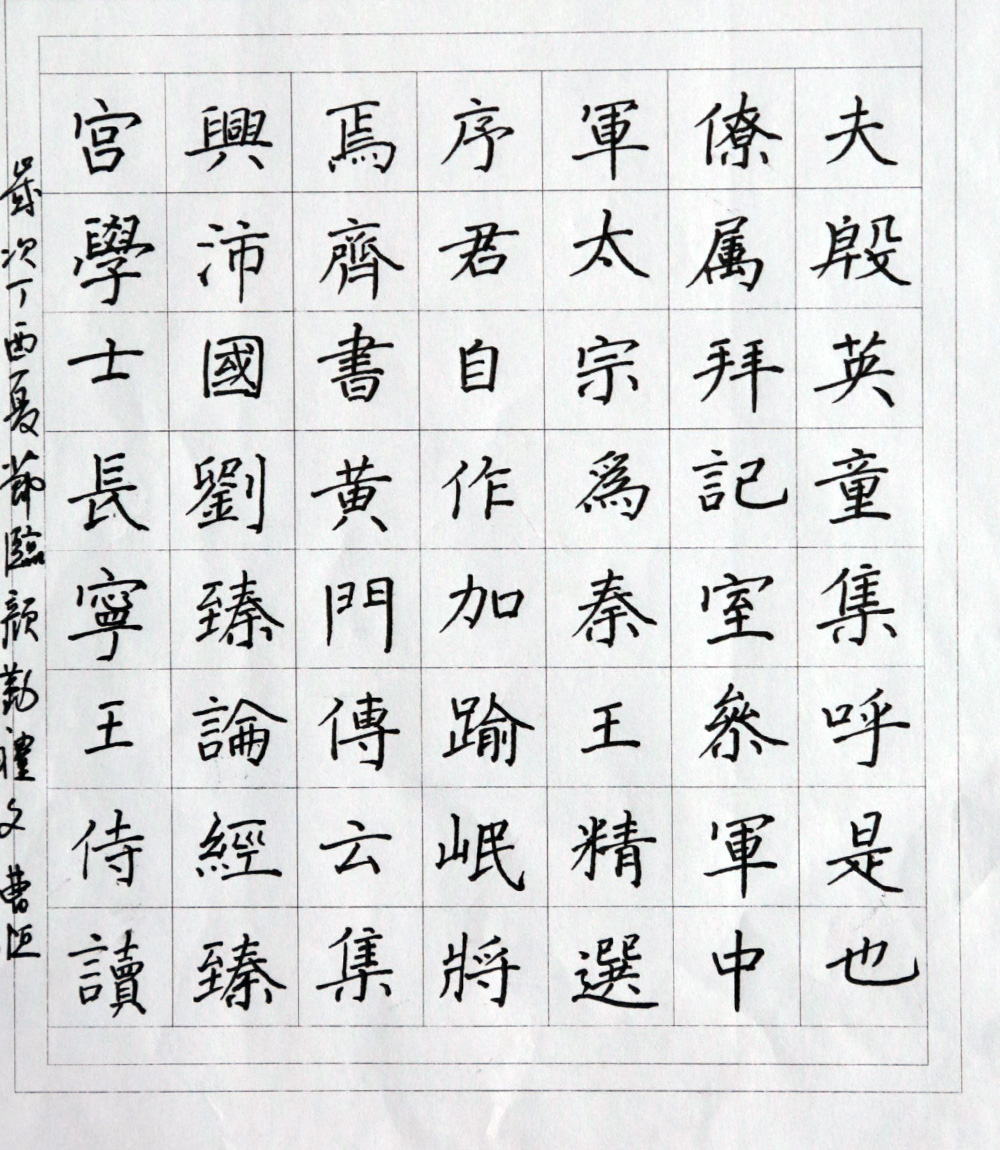 夫殷英童集呼是也
僚属拜記室参軍中
軍太宗為秦王精選
序君自作加踰岷將
焉齊書黄門傳云集
興沛國劉臻論經臻
宮學士長寧王侍讀
歲次丁酉夏節臨顔勤禮文曹恒